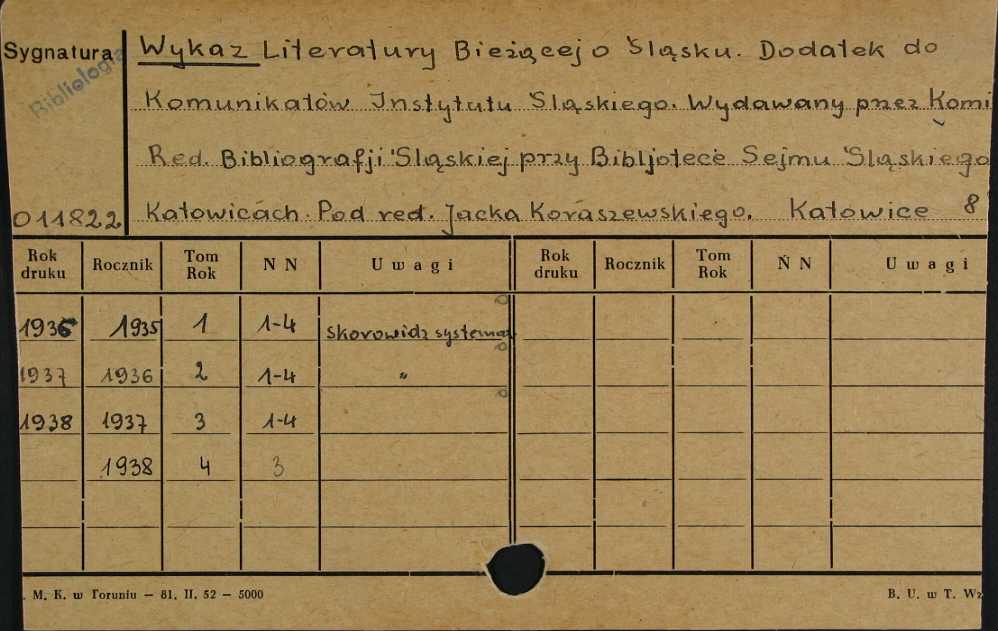 Sygnatura
Bibliologia
011822
Wykaz Literatury Bieżącej o Śląsku. Dodatek do
Komunikatów Instytutu Śląskiego. Wydawany przez Komi
Red. Bibliografji Śląskiej przy Bibljotece Sejmu Śląskiego
Katowicach. Pod red. Jacka Koraszewskiego. Katowice 8
Rok druku Rocznik Tom Rok N N Uwagi Rok druku Rocznik Tom Rok N N Uwagi
1936 1935 1 1-4 skorowidz systemat
1937 1936 2 1-4 "
1938 1937 3 1-4
1938 4 3
. M. K. w Toruniu — 81. II. 52 — 5000
B. U. w T. Wz